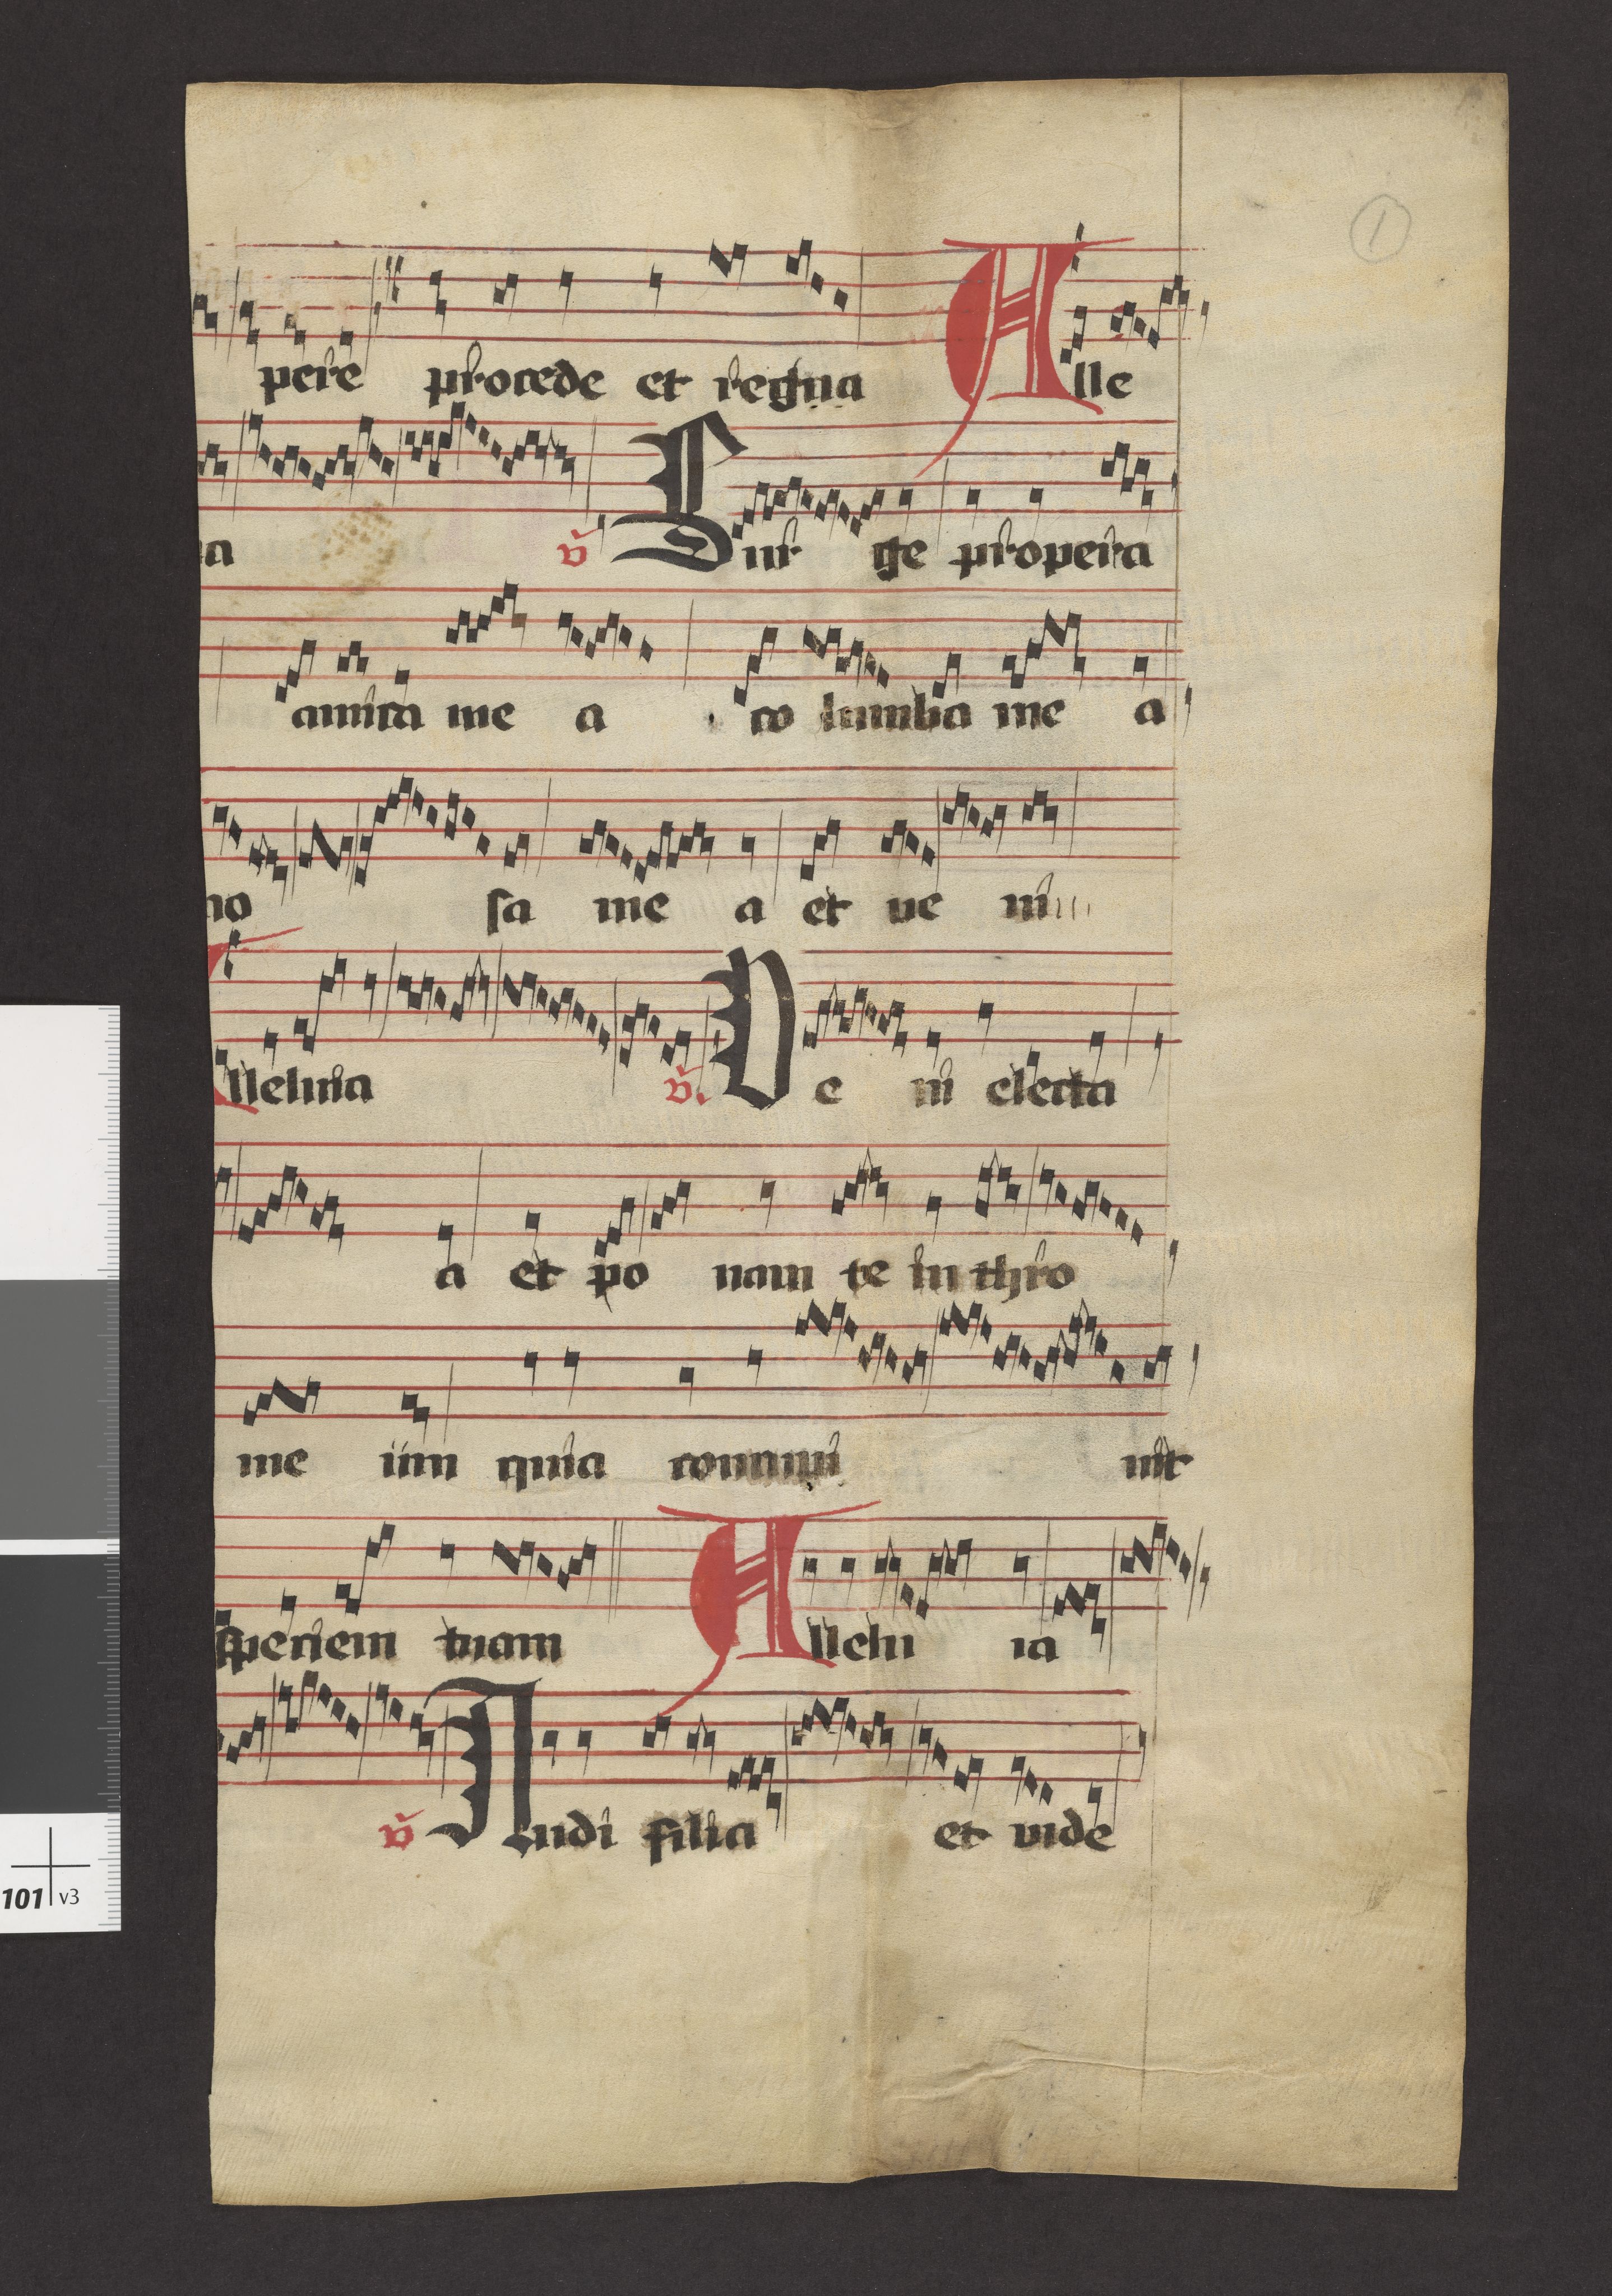 1
pere procede et regna Alle
ia v Surge propera
amica mea columba mea
mosa mea et veni
Alleluia v. Veni electa
a et ponam te in thro
meum quia concupiuit
speciem tuam Alleluia
v Audi filia et vide
101 v3